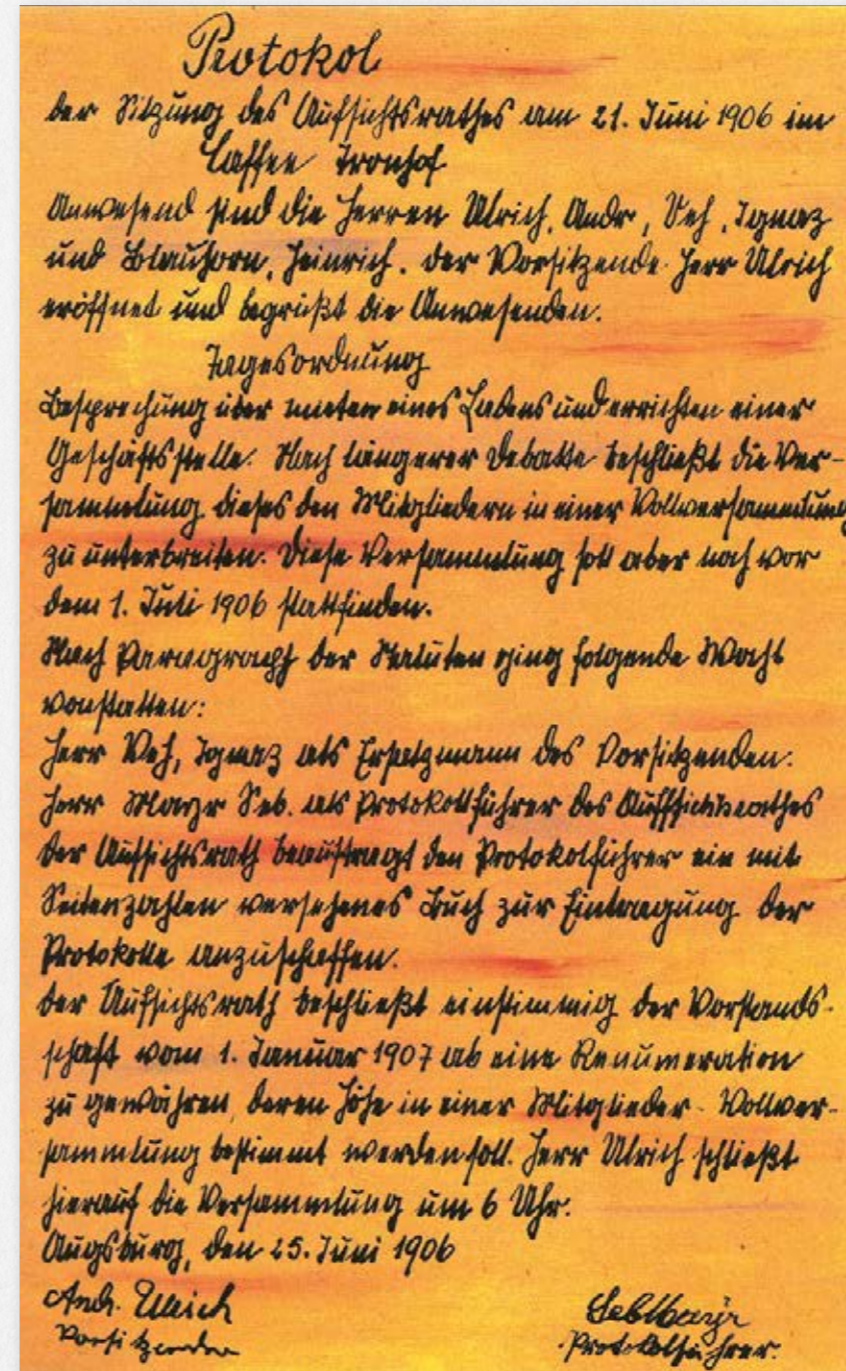 Protokol
der Sitzung des Aufsichtsrathes am 21. Juni 1906 im
Caffee Fronhof
Anwesend sind die Herren Ulrich, Andr, Veh, Ignaz
und Blauhorn, Heinrich. Der Vorsitzende Herr Ulrich
eröffnet und begrüßt die Anwesenden.
Tagesordnung
Besprechung über mieten eines Ladens und errichten einer
Geschäftsstelle. Nach längerer Debatte beschließt die Ver-
sammlung dieses den Mitgliedern in einer Vollversammlung
zu unterbreiten. Diese Versammlung soll aber noch vor
dem 1. Juli 1906 stattfinden.
Nach Paragraph der Statuten ging folgende Wahl
vonstatten:
Herr Veh, Ignaz als Ersatzmann des Vorsitzenden.
Herr Mayr Seb. als Protokollführer des Aufsichtsrathes
Der Aufsichtsrath beauftragt den Protokolführer ein mit
Seitenzahlen versehenes Buch zur Eintragung der
Protokolle anzuschaffen.
Der Aufsichtsrath beschließt einstimmig der Vorstands-
schaft vom 1. Januar 1907 ab eine Renumeration
zu gewähren, deren Höhe in einer Mitglieder-Vollver-
sammlung bestimmt werden soll. Herr Ulrich schließt
hierauf die Versammlung um 6 Uhr.
Augsburg, den 25. Juni 1906
Andr. Ulrich
Vorsitzender
Seb Mayr
Protokolführer.